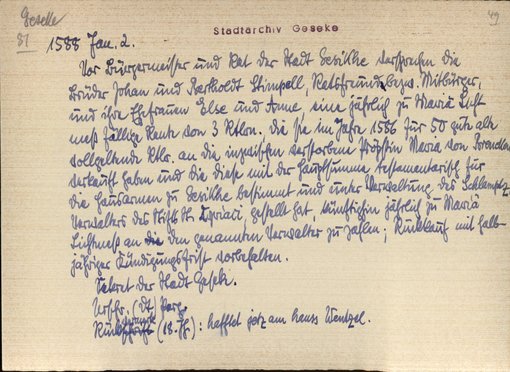 Geseke
Stadtarchiv Geseke
49
81
1588 Jan. 2.
Vor Bürgermeister und Rat der Stadt Gesikhe versprechen die
Brüder Johan und Berholdt Stimpell, Ratsfreund bezw. Mitbürger,
und ihre Ehefrauen Else und Anne eine jährlich zu Mariä Licht
meß fällige Rente von 3 Rtlrn. die sie im Jahre 1586 für 50 gute alte
vollgeltende Rtlr. an die inzwischen verstorbene Pröpstin Maria von
verkauft haben und die diese mit der Hauptsumme testamentarisch für
die Hausarmen zu Gesikhe bestimmt und unter Verwaltung des
Verwalters des Stifts St. Cyriaci gestellt hat, künftighin jährlich zu Mariä
Lichtmeß an die den genannten Verwalter zu zahlen; Rückkauf mit halb-
jähriger Kündigungsfrist vorbehalten.
Sekret der Stadt Geseke.
Urschr. (dt) Perg.
(18. Jh.): hafftet jetz am hauss Wentzel.